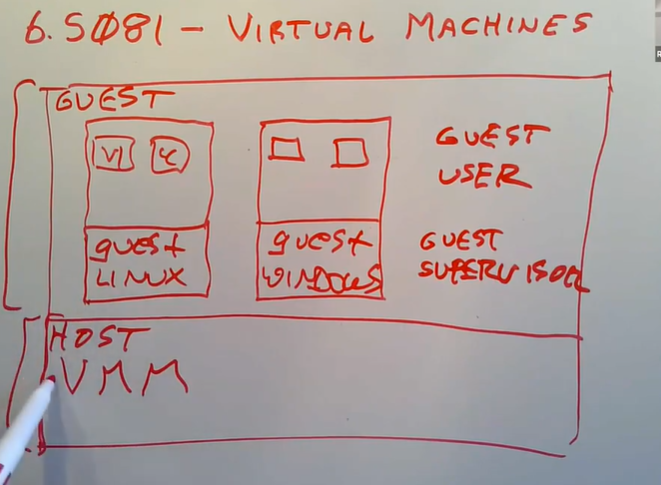 6.SØ81 - VIRTUAL MACHINES
GUEST
VI C
GUEST
USER
guest
LINUX
guest
WINDOWS
GUEST
SUPERVISOR
HOST
VMM